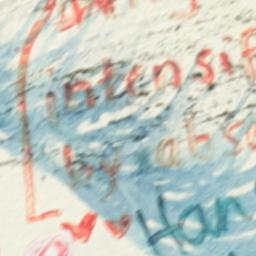 intensif
by abso
Han